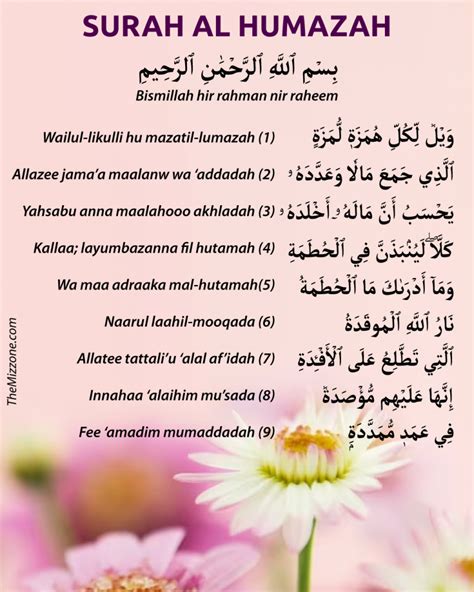 SURAH AL HUMAZAH
بِسْمِ ٱللَّهِ ٱلرَّحْمَٰنِ ٱلرَّحِيمِ
Bismillah hir rahman nir raheem
Wailul-likulli hu mazatil-lumazah (1) وَيْلٌ لِّكُلِّ هُمَزَةٍ لُّمَزَةٍ
Allazee jama’a maalanw wa ‘addadah (2) ٱلَّذِي جَمَعَ مَالًا وَعَدَّدَهُۥ
Yahsabu anna maalahooo akhladah (3) يَحْسَبُ أَنَّ مَالَهُۥٓ أَخْلَدَهُۥ
Kallaa; layumbazanna fil hutamah (4) كَلَّاۖ لَيُنۢبَذَنَّ فِي ٱلْحُطَمَةِ
Wa maa adraaka mal-hutamah(5) وَمَآ أَدْرَىٰكَ مَا ٱلْحُطَمَةُ
Naarul laahil-mooqada (6) نَارُ ٱللَّهِ ٱلْمُوقَدَةُ
Allatee tattali’u ‘alal af’idah (7) ٱلَّتِي تَطَّلِعُ عَلَى ٱلْأَفْـِٔدَةِ
Innahaa ‘alaihim mu’sada (8) إِنَّهَا عَلَيْهِم مُّؤْصَدَةٌ
Fee ‘amadim mumaddadah (9) فِي عَمَدٍ مُّمَدَّدَةٍۭ
TheMizzone.com